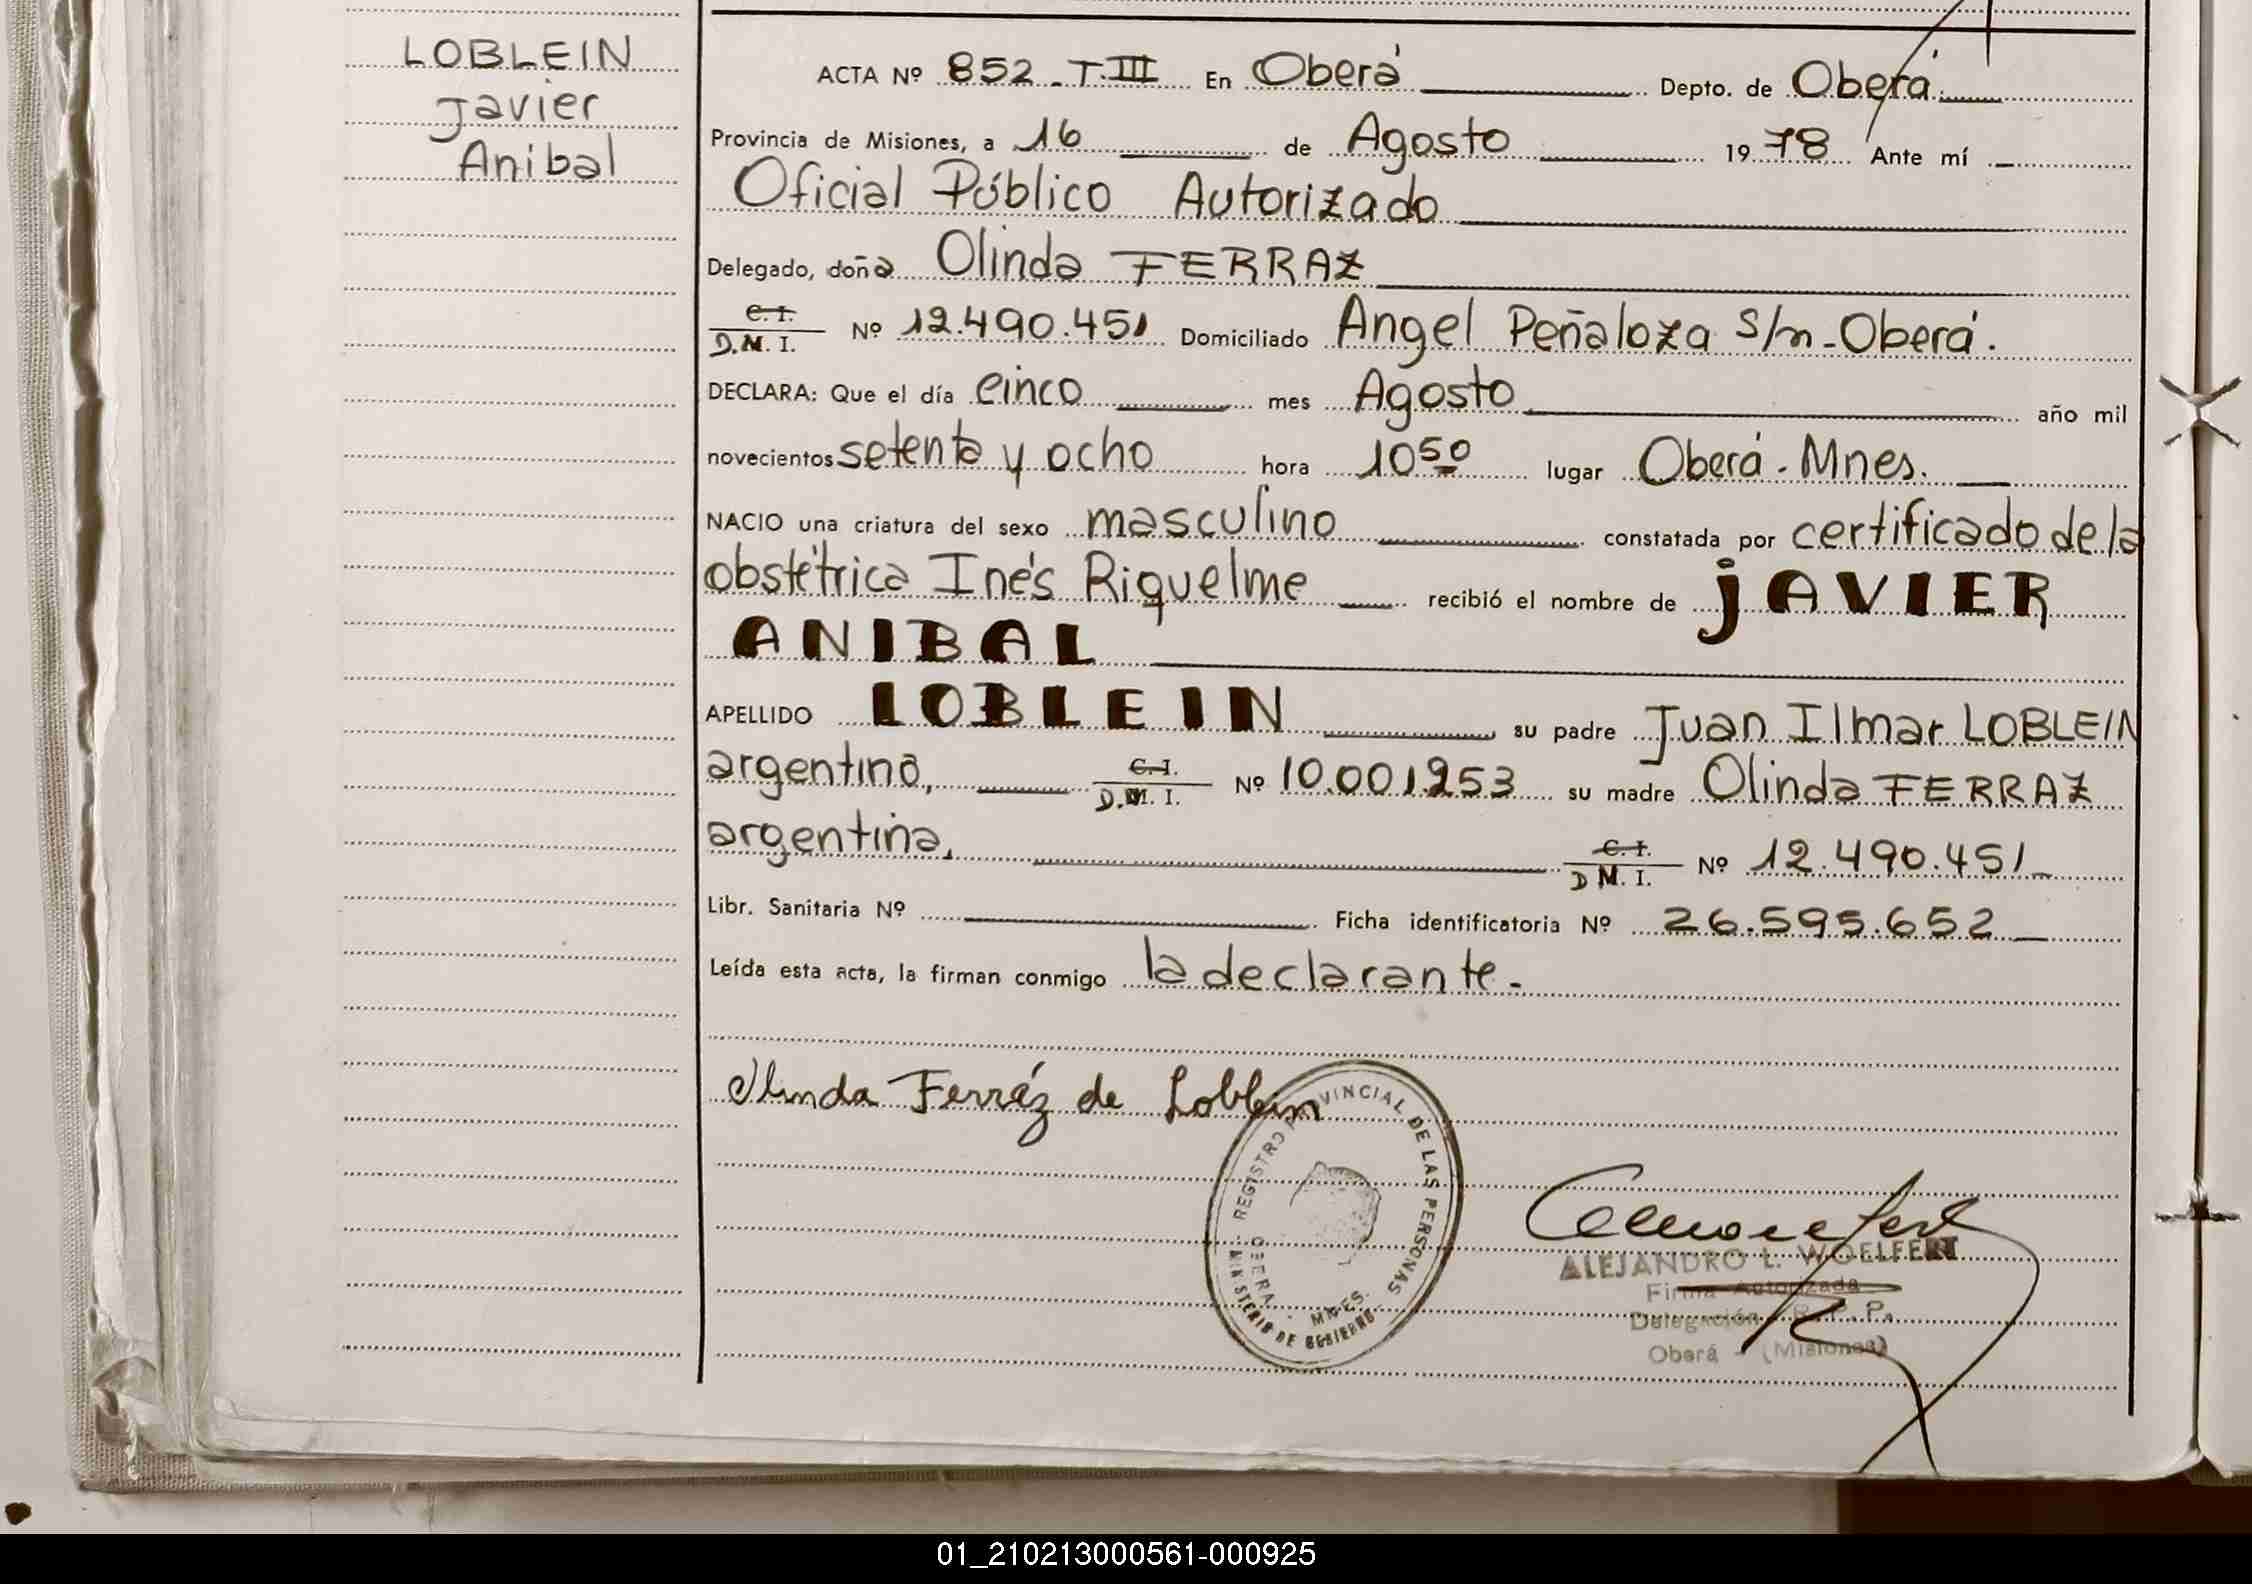 LOBLEIN
Javier
Anibal
ACTA Nº 852 - T. III En Oberá Depto. de Oberá
Provincia de Misiones, a 16 de Agosto 1978 Ante mí
Oficial Público Autorizado
Delegado, doña Olinda FERRAZ
C. I.
D. M. I. Nº 12.490.451 Domiciliado Angel Peñaloza s/n - Oberá.
DECLARA: Que el día cinco mes Agosto año mil
novecientos setenta y ocho hora 10 50 lugar Oberá - Mnes.
NACIO una criatura del sexo masculino constatada por certificado de la
obstétrica Inés Riquelme recibió el nombre de JAVIER
ANIBAL
APELLIDO LOBLEIN su padre Juan Ilmar LOBLEIN
argentino, C. I.
D. M. I. Nº 10.001.253 su madre Olinda FERRAZ
argentina, C. I.
D M. I. Nº 12.490.451
Libr. Sanitaria Nº Ficha identificatoria Nº 26.595.652
Leída esta acta, la firman conmigo la declarante.
Olinda Ferráz de Loblein
REGISTRO PROVINCIAL DE LAS PERSONAS
OBERA - MNES.
MINISTERIO DE GOBIERNO
ALEJANDRO L. WOELFERT
Firma Autorizada
Delegación R. P. P.
Oberá - (Misiones)
01_210213000561-000925